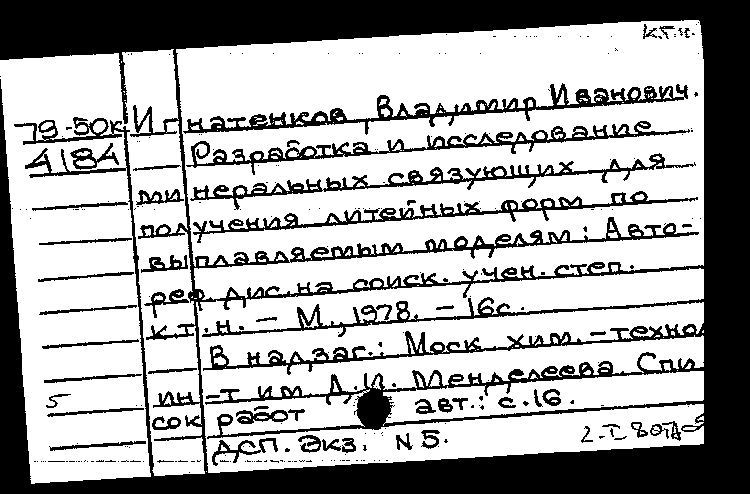 к.т.н.
79-50к Игнатенков, Владимир Иванович.
4184 Разработка и исследование
минеральных связующих для
получения литейных форм по
выплавляемым моделям: Авто-
реф. дис. на соиск. учен. степ.
к.т.н. - М., 1978. - 16с.
В надзаг.: Моск. хим.-технол
5 ин-т им. Д.И. Менделеева. Спи
сок работ авт.: с.16.
ДСП. Экз. N 5.